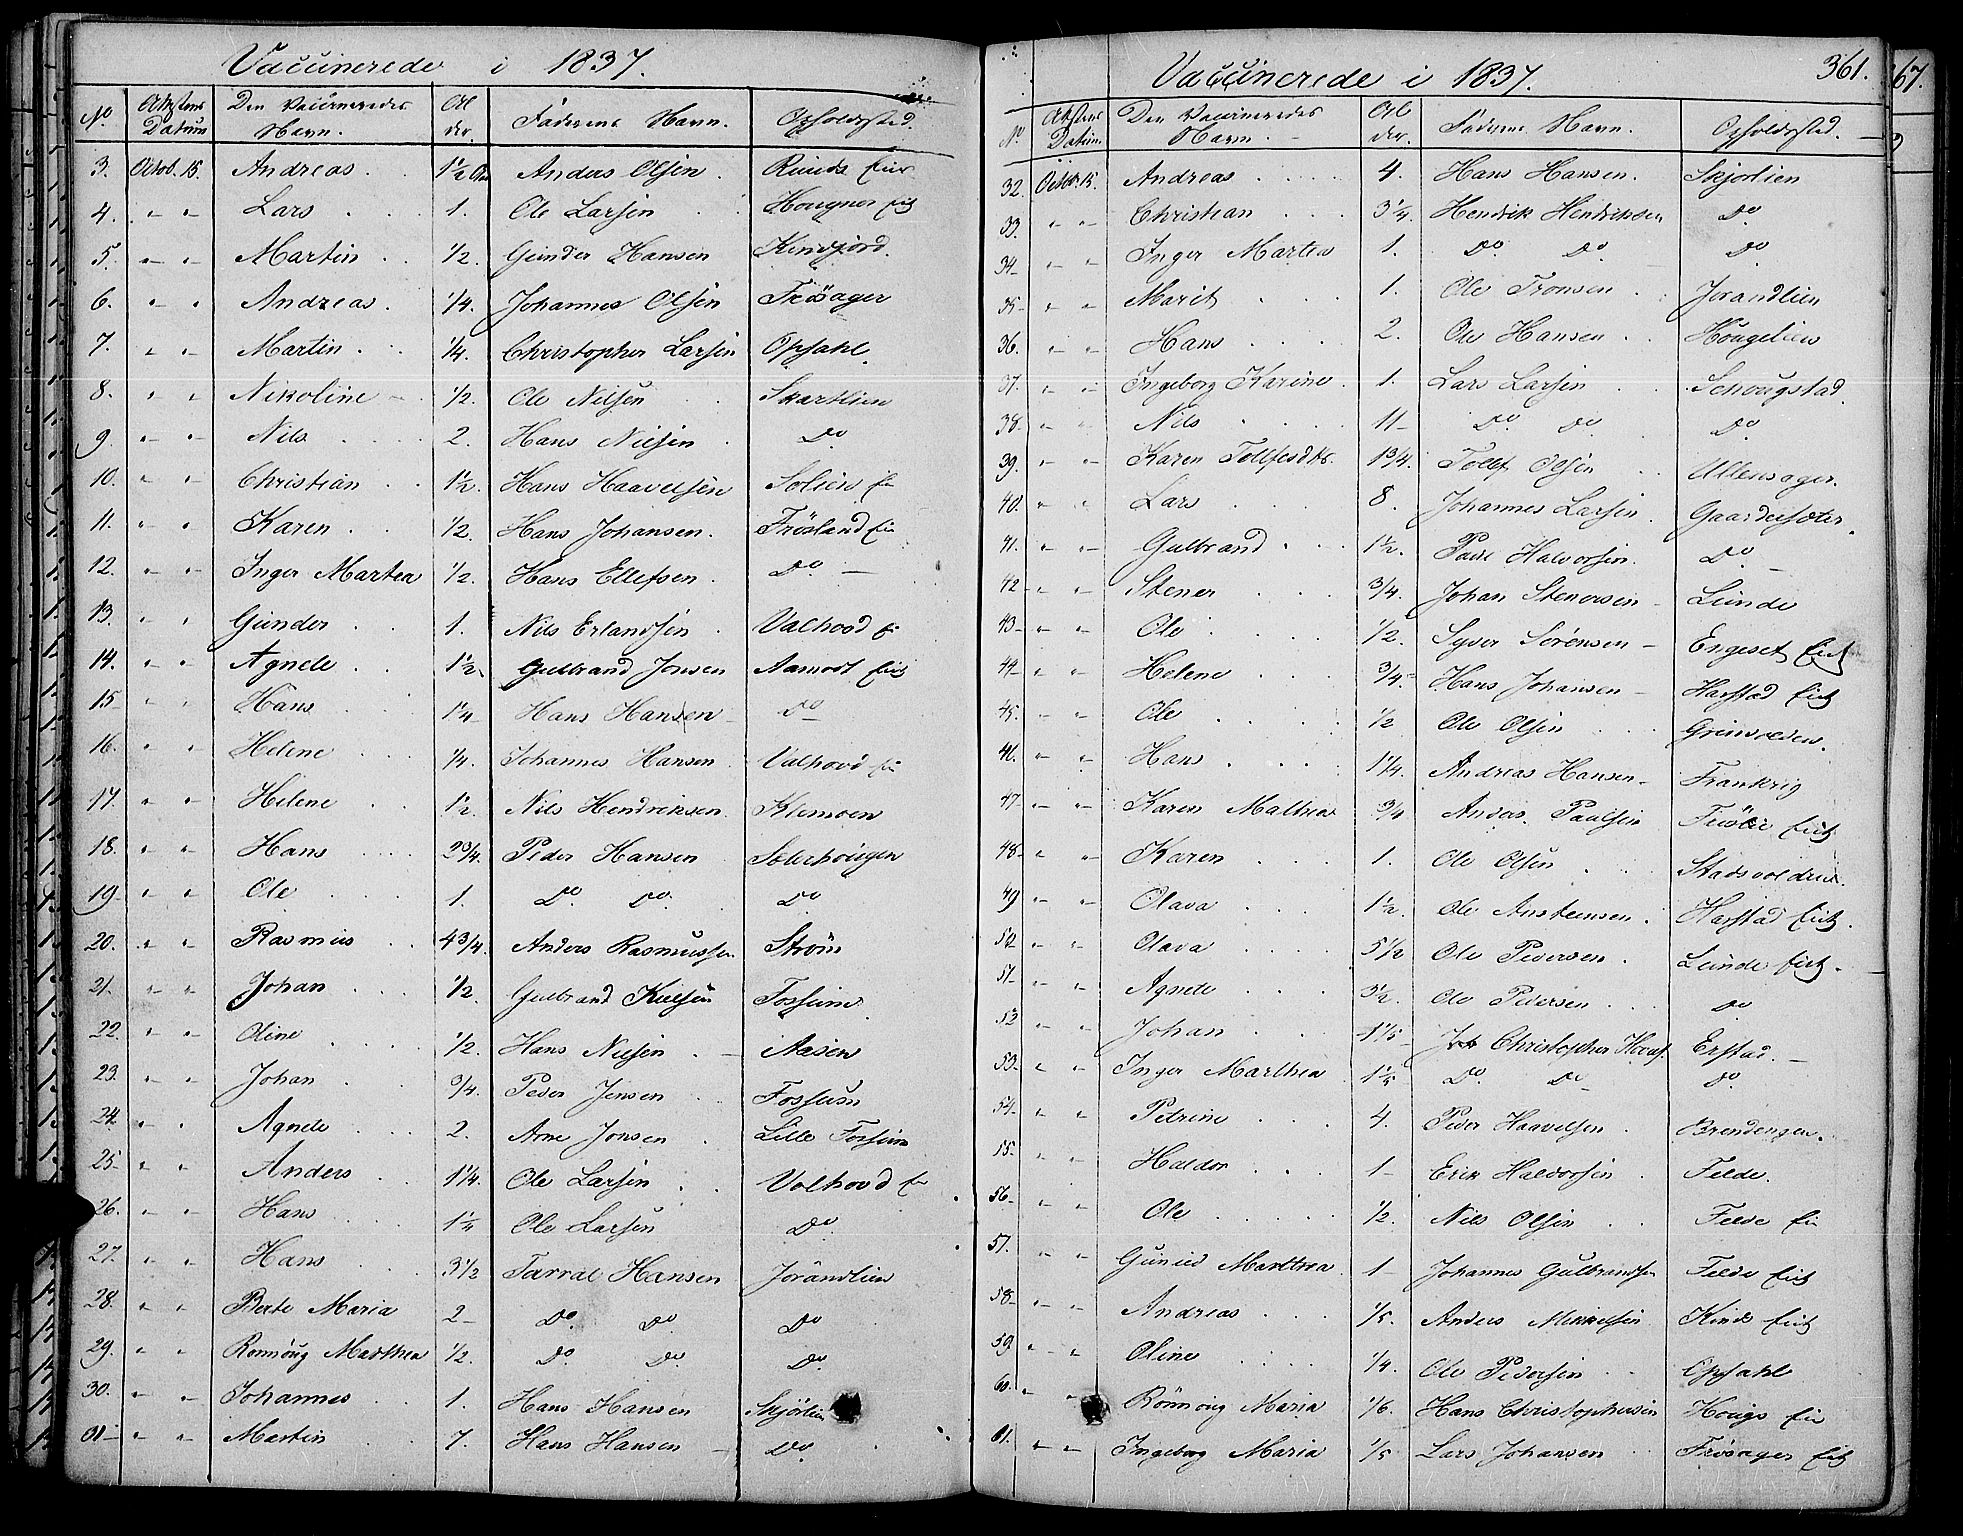 Vaccinerede i 1837.
No. Attestens Datum Den Vaccineredes Navn. Alder. Faderens Navn. Opholdssted.
3. Octob. 15. Andreas. 1½ Anders Olsen. Runds
4. " " Lars 1. Ole Larsen Hougner
5. " " Martin 1/2. Gunder Hansen Kinsjord.
6. " " Andreas. 1/4. Johannes Olsen Frösager
7. " " Martin. 1/4. Christopher Larsen Opsahl.
8. " " Nikoline 1/2. Ole Nilsen Skartlien
9. " " Nils 2. Hans Nilsen Do
10. " " Christian 1½. Hans Haavelsen Solien
11. " " Karen. 1/2. Hans Johansen. Frösland
12. " " Inger Marten 1/2. Hans Ellefsen Do. —
13. " " Gunder 1. Nils Erlandsen Valhovd
14. " " Agnete 1½. Gulbrand Jonsen Aamodt
15 " " Hans 1¼ Hans Hansen Do
16. " " Helene 1/4. Johannes Hansen Valhovd
17. " " Helene 1½. Nils Hendriksen Klemoen
18. " " Hans 2¾. Peder Hansen Solerhougen
19. " " Ole 1. Do. Do. Do
20. " " Rasmus 4¾. Anders Rasmussen Ström
21. " " Johan 1/2. Gulbrand Fossum
22. " " Oline 1/2. Hans Nilsen Aasen
23. " " Johan 3/4. Peder Jensen Fossum
24. " " Agnete 2. Arne Jonsen Lille Fossum
25. " " Anders 1¼. Ole Larsen Valhovd
26. " " Hans 1¼ Ole Larsen Do
27. " " Hans 3½ Tarral Hansen Jörandlien
28. " " Berte Maria 2 Do. Do. Do
29. " " Ronnöug Marthea 1/2. Do. Do. Do.
30. " " Johannes 1. Hans Hansen Skjörlien
31 " " Martin 7. Hans Hansen Do.
Vaccinerede i 1837. 361.
No Attestens Datum. Den Vaccineredes Navn. Alder. Faderne Navn. Opholdssted.
32. Octob. 15. Andreas 4. Hans Hansen. Skjorlien
33. " " Christian 3¼. Hendrik Hendriksen Do
34 " " Inger Marten 1. Do. Do. Do
35 " " Marit 1. Ole Tronsen Jorandlien
36. " " Hans 2. Ole Hansen Hougelien
37. " " Ingeborg Karine. 1. Lars Larsen Schougstad.
38. " " Nils 11 Do Do. Do
39. " " Karen Tollefsdtr. 1¾. Tollef Olsen Ullensager.
40. " " Lars 8. Johannes Larsen. Gaardersæter.
41. " " Gulbrand 1½. Paul Halvorsen. Do.
42 " " Stener 3/4. Johan Stenersen Lunde
43 " " Ole 1/2. Syver Sörensen Engeset
44 " " Helene 3/4. Hans Johansen Harstad
45. " " Ole 1/2 Ole Olsen
46. " " Hans 1¼. Andreas Hansen Frankrig
47 " " Karen Mathea 3/4 Anders Paulsen
48 " " Karen 1. Ole Olsen Stadsvolden.
49 " " Olava 1½. Ole Anstensen. Harstad
50 " " Olava 5½ Ole Pedersen. Lunde
51 " " Agnete 3½. Ole Pedersen Do
52 " " Johan Christopher Erstad.
53. " " Inger Marthea Do. Do Do.
54 " " Petrine 4. Peder Haavelsen Brendengen.
55 " " Haldor 1 Erik Haldorsen Felde.
56 " " Ole 1/2. Nils Olsen Felde
57. " " Gunild Marthea 1 Johannes Gulbrandsen Felde
58 " " Andreas 1/5. Anders Mikkelsen Kinds
59. " " Oline 1/4. Ole Pedersen Opsahl
60. " " Rönnoug Maria 1/6. Hans Christophersen Hougs
61. " " Ingeborg Maria 1/5 Lars Johansen Frösager